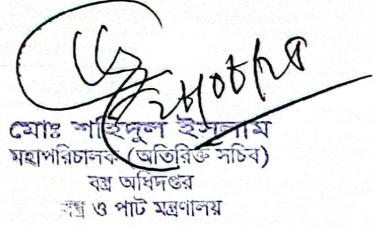 ২৮/০৮/২৪
মোঃ শহিদুল ইসলাম
মহাপরিচালক (অতিরিক্ত সচিব)
বস্ত্র অধিদপ্তর
বস্ত্র ও পাট মন্ত্রণালয়